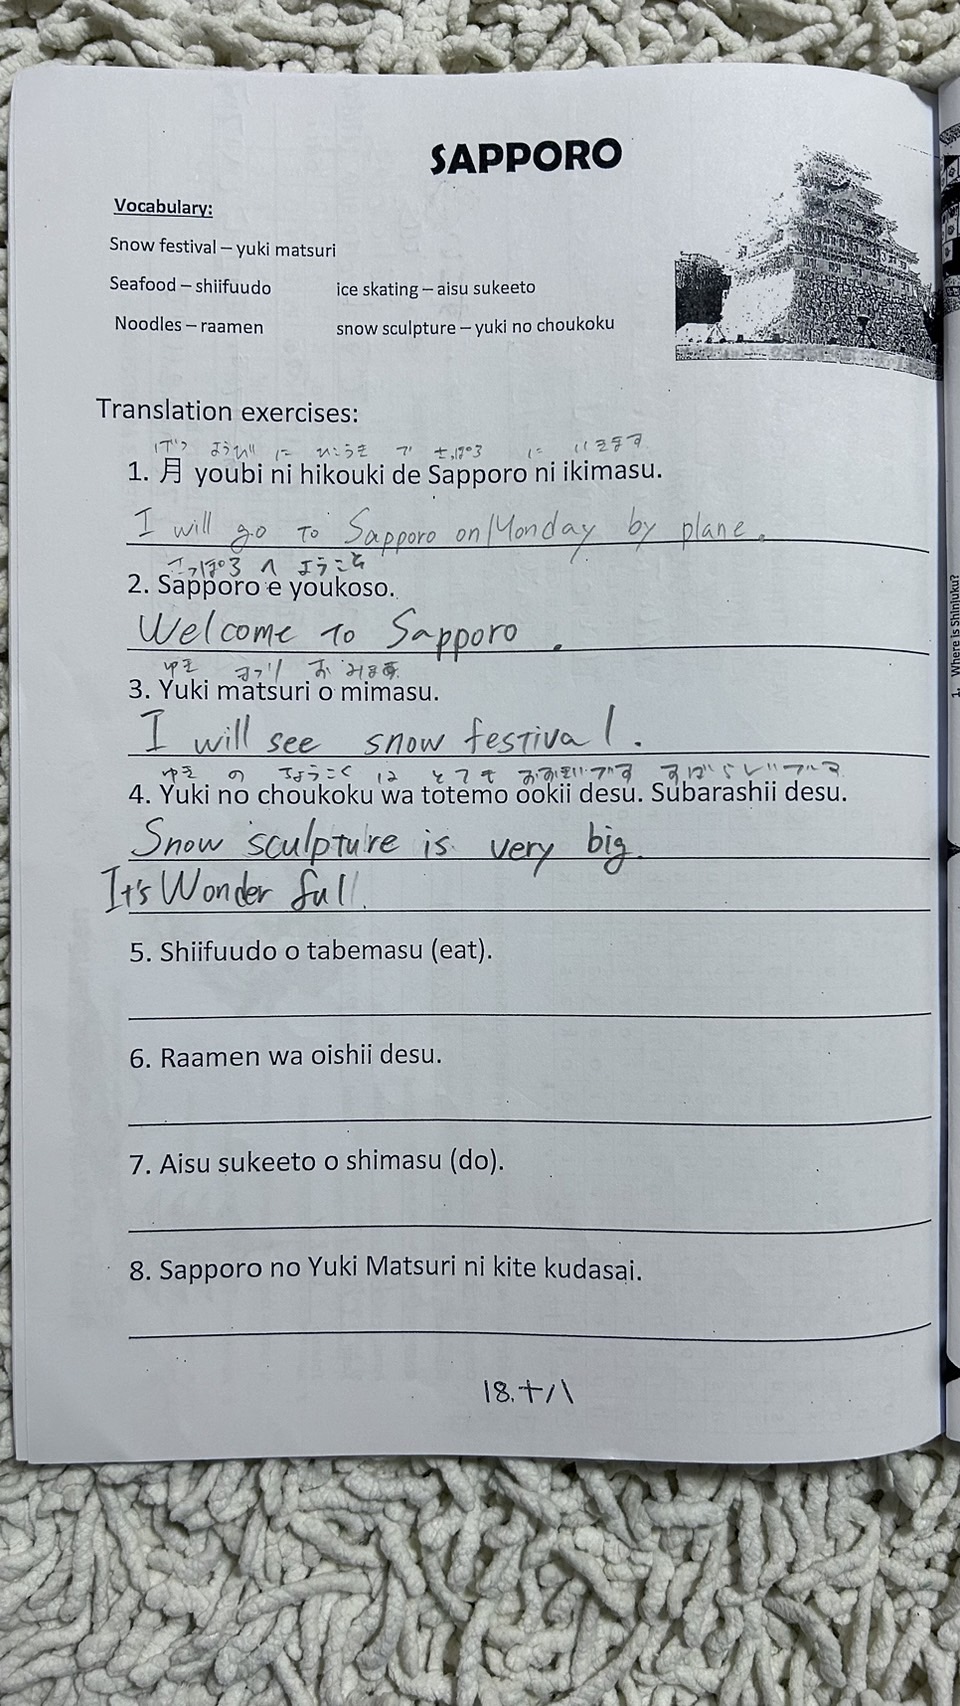 SAPPORO
Vocabulary:
Snow festival – yuki matsuri
Seafood – shiifuudo ice skating – aisu sukeeto
Noodles – raamen snow sculpture – yuki no choukoku
Translation exercises:
げつ ようび に ひこうき で さっぽろ に いきます
1. 月 youbi ni hikouki de Sapporo ni ikimasu.
I will go to Sapporo on Monday by plane.
さっぽろ へ ようこそ
2. Sapporo e youkoso.
Welcome to Sapporo.
ゆき まつり お みます
3. Yuki matsuri o mimasu.
I will see snow festival.
ゆき の ちょうこく は とても おおきいです すばらしいです
4. Yuki no choukoku wa totemo ookii desu. Subarashii desu.
Snow sculpture is very big.
It's Wonder full.
5. Shiifuudo o tabemasu (eat).
6. Raamen wa oishii desu.
7. Aisu sukeeto o shimasu (do).
8. Sapporo no Yuki Matsuri ni kite kudasai.
18.十八
1. Where is Shinjuku?